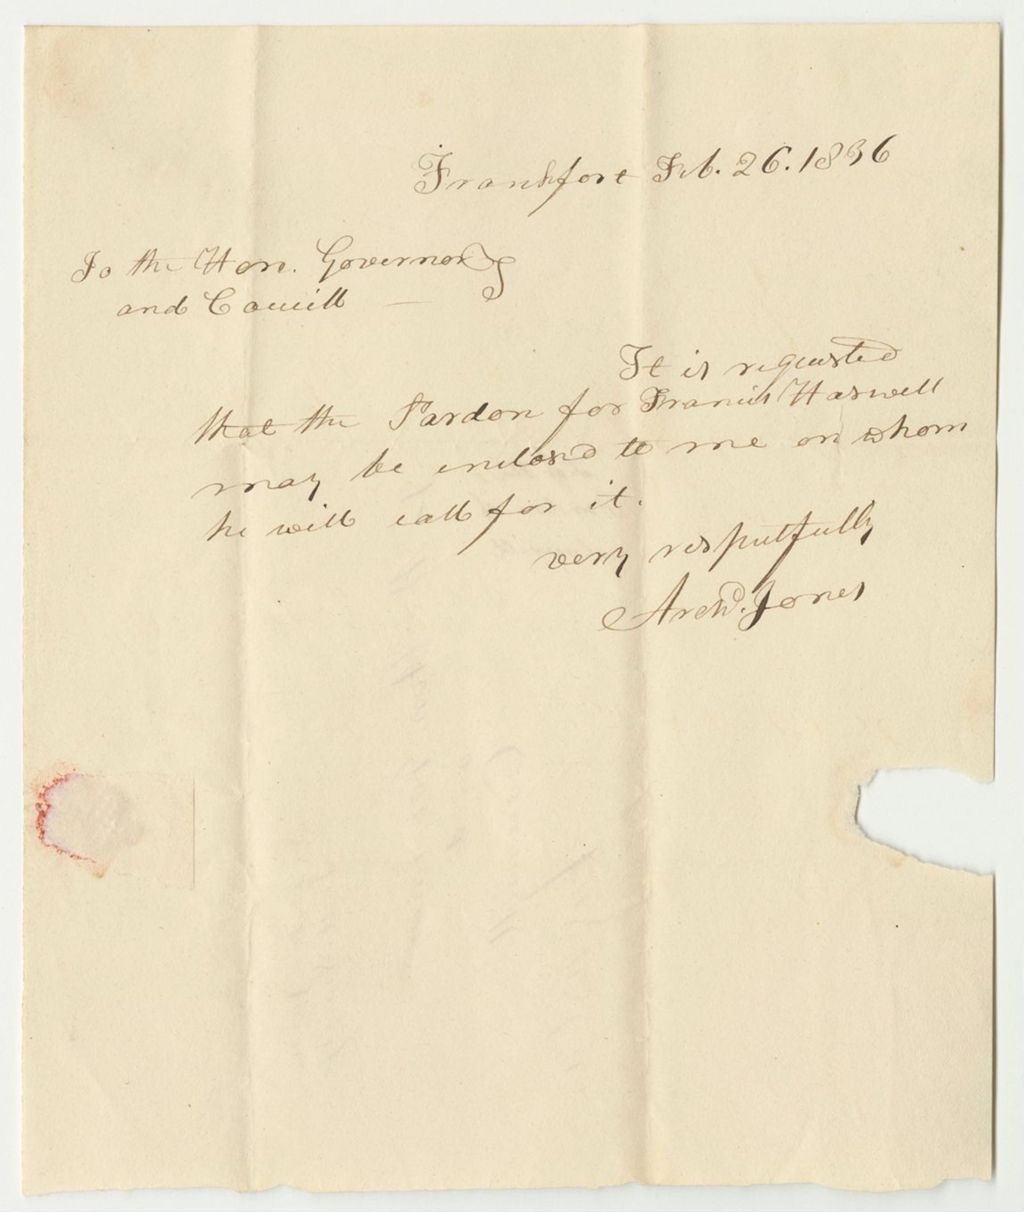 Frankfort Feb. 26. 1836
To the Hon. Governor
and Council
It is requested
that the Pardon for Francis Haswell
may be enclosed to me on whom
he will call for it.
very respectfully
Archd. Jones